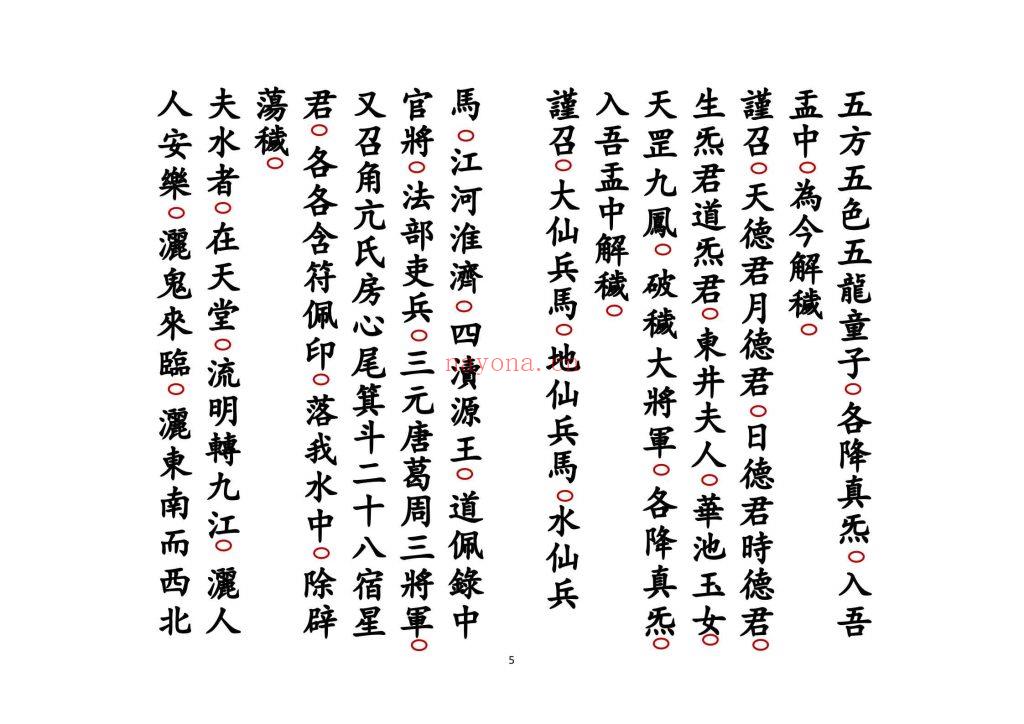 五方五色五龍童子○各降真炁○入吾
盂中○為今解穢○
謹召○天德君月德君○日德君時德君○
生炁君道炁君○東井夫人○華池玉女○
天罡九鳳○破穢大將軍○各降真炁○
入吾盂中解穢○
謹召○大仙兵馬○地仙兵馬○水仙兵
馬○江河淮濟○四瀆源王○道佩籙中
官將○法部吏兵○三元唐葛周三將軍○
又召角亢氐房心尾箕斗二十八宿星
君○各各含符佩印○落我水中○除辟
蕩穢○
夫水者○在天堂○流明轉九江○灑人
人安樂○灑鬼來臨○灑東南而西北
nayona.cn
5